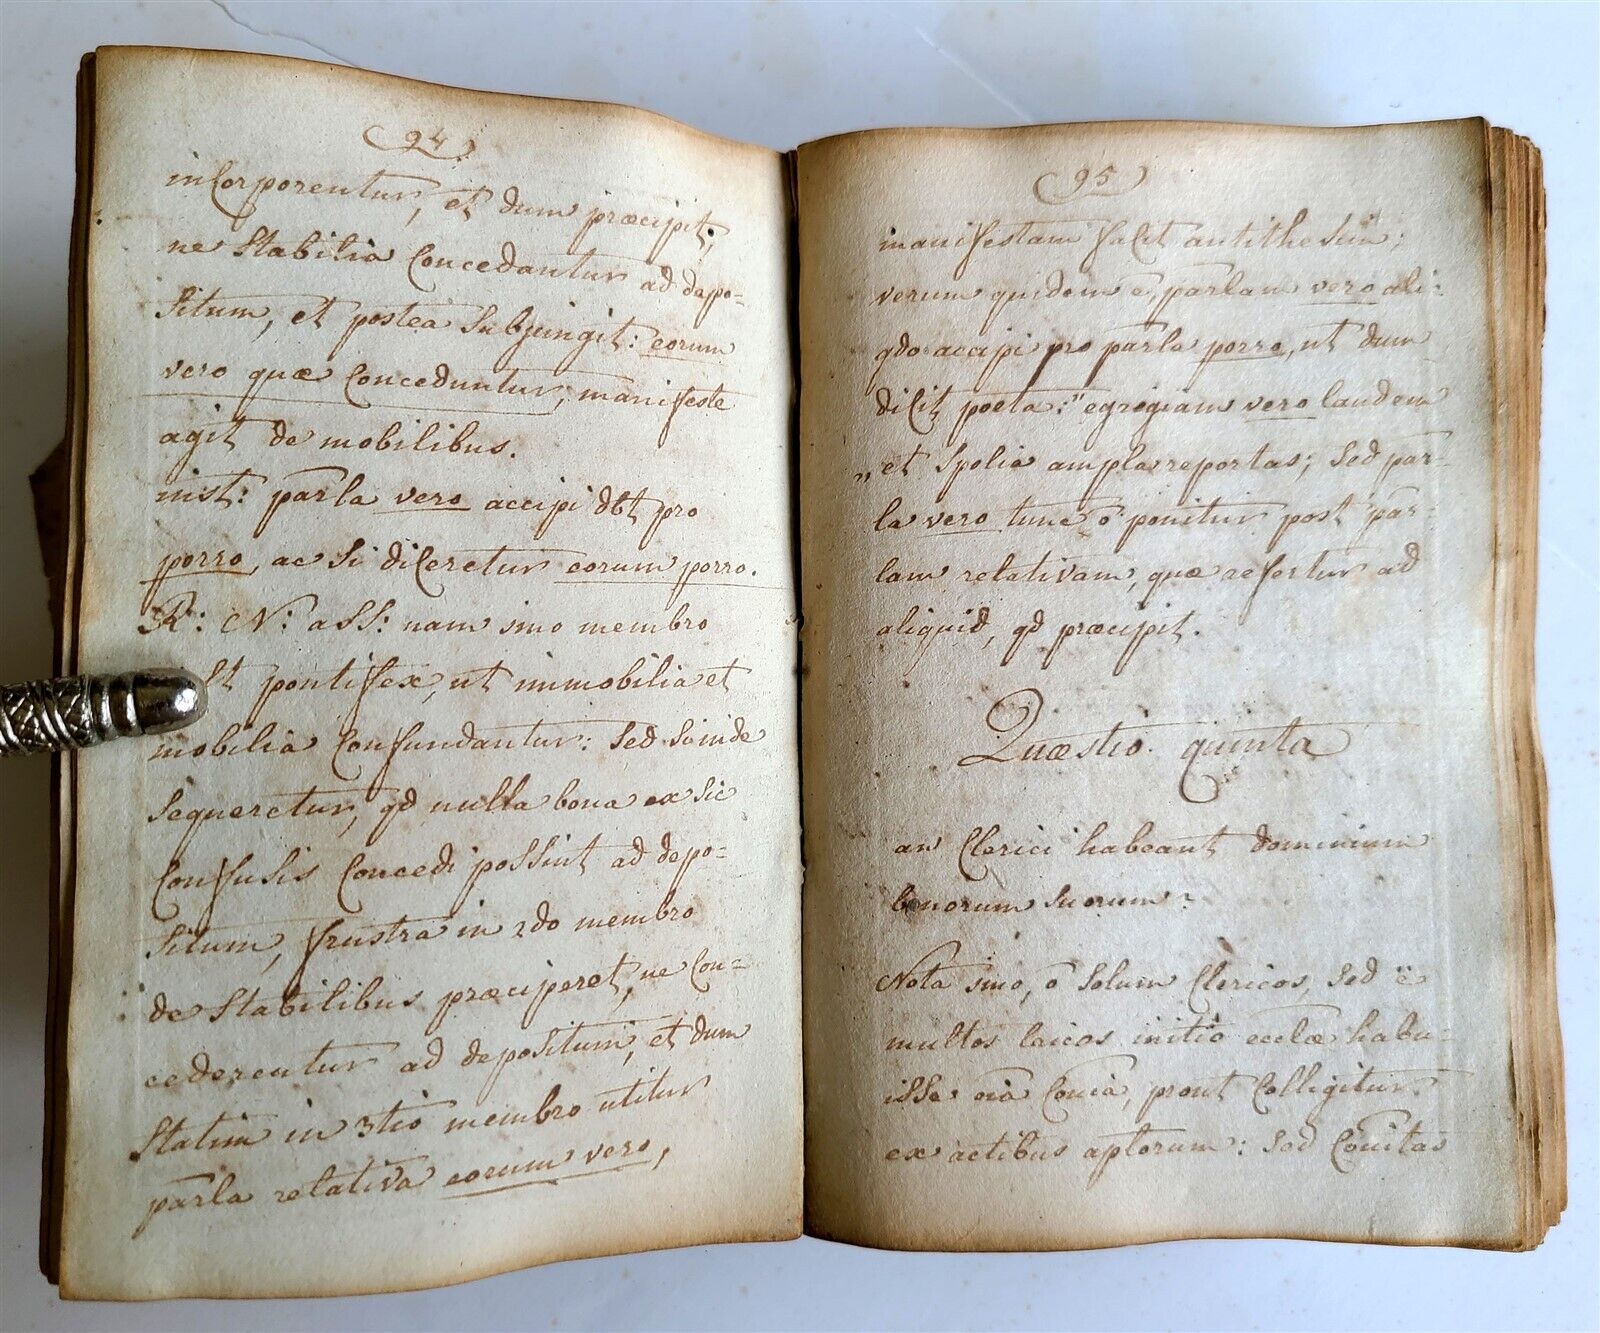 94
incorporentur, et dum præcipit;
ne stabilia concedantur ad depo=
situm, et postea subjungit: eorum
vero quæ conceduntur, manifeste
agit de mobilibus.
inst: parla vero accipi dbt pro
porro, ac si diceretur eorum porro.
R: N: ass: nam imo membro
pontifex, ut immobilia et
mobilia confundantur: sed si inde
sequeretur, qd nulla bona ex sic
confusis concedi possint ad depo=
situm, frustra in 2do membro
de stabilibus præciperet, ne con=
cederentur ad depositum, et dum
statim in 3tio membro utitur
parla relativa eorum vero,
95
manifestam facit antithesin;
verum quidem ē, parlam vero ali=
qdo accipi pro parla porro, ut dum
dicit poeta: "egregiam vero laudem
„ et spolia ampla reportas; sed par=
la vero tunc ō ponitur post par=
lam relativam, quæ refertur ad
aliquid, qd præcipit.
Quæstio quinta
an Clerici habeant dominium
bonorum suorum?
Nota imo, ō solum Clericos, sed ē
multos laicos initio ecclæ habu=
isse oia couia, prout colligitur
ex actibus aptorum: sed couitas